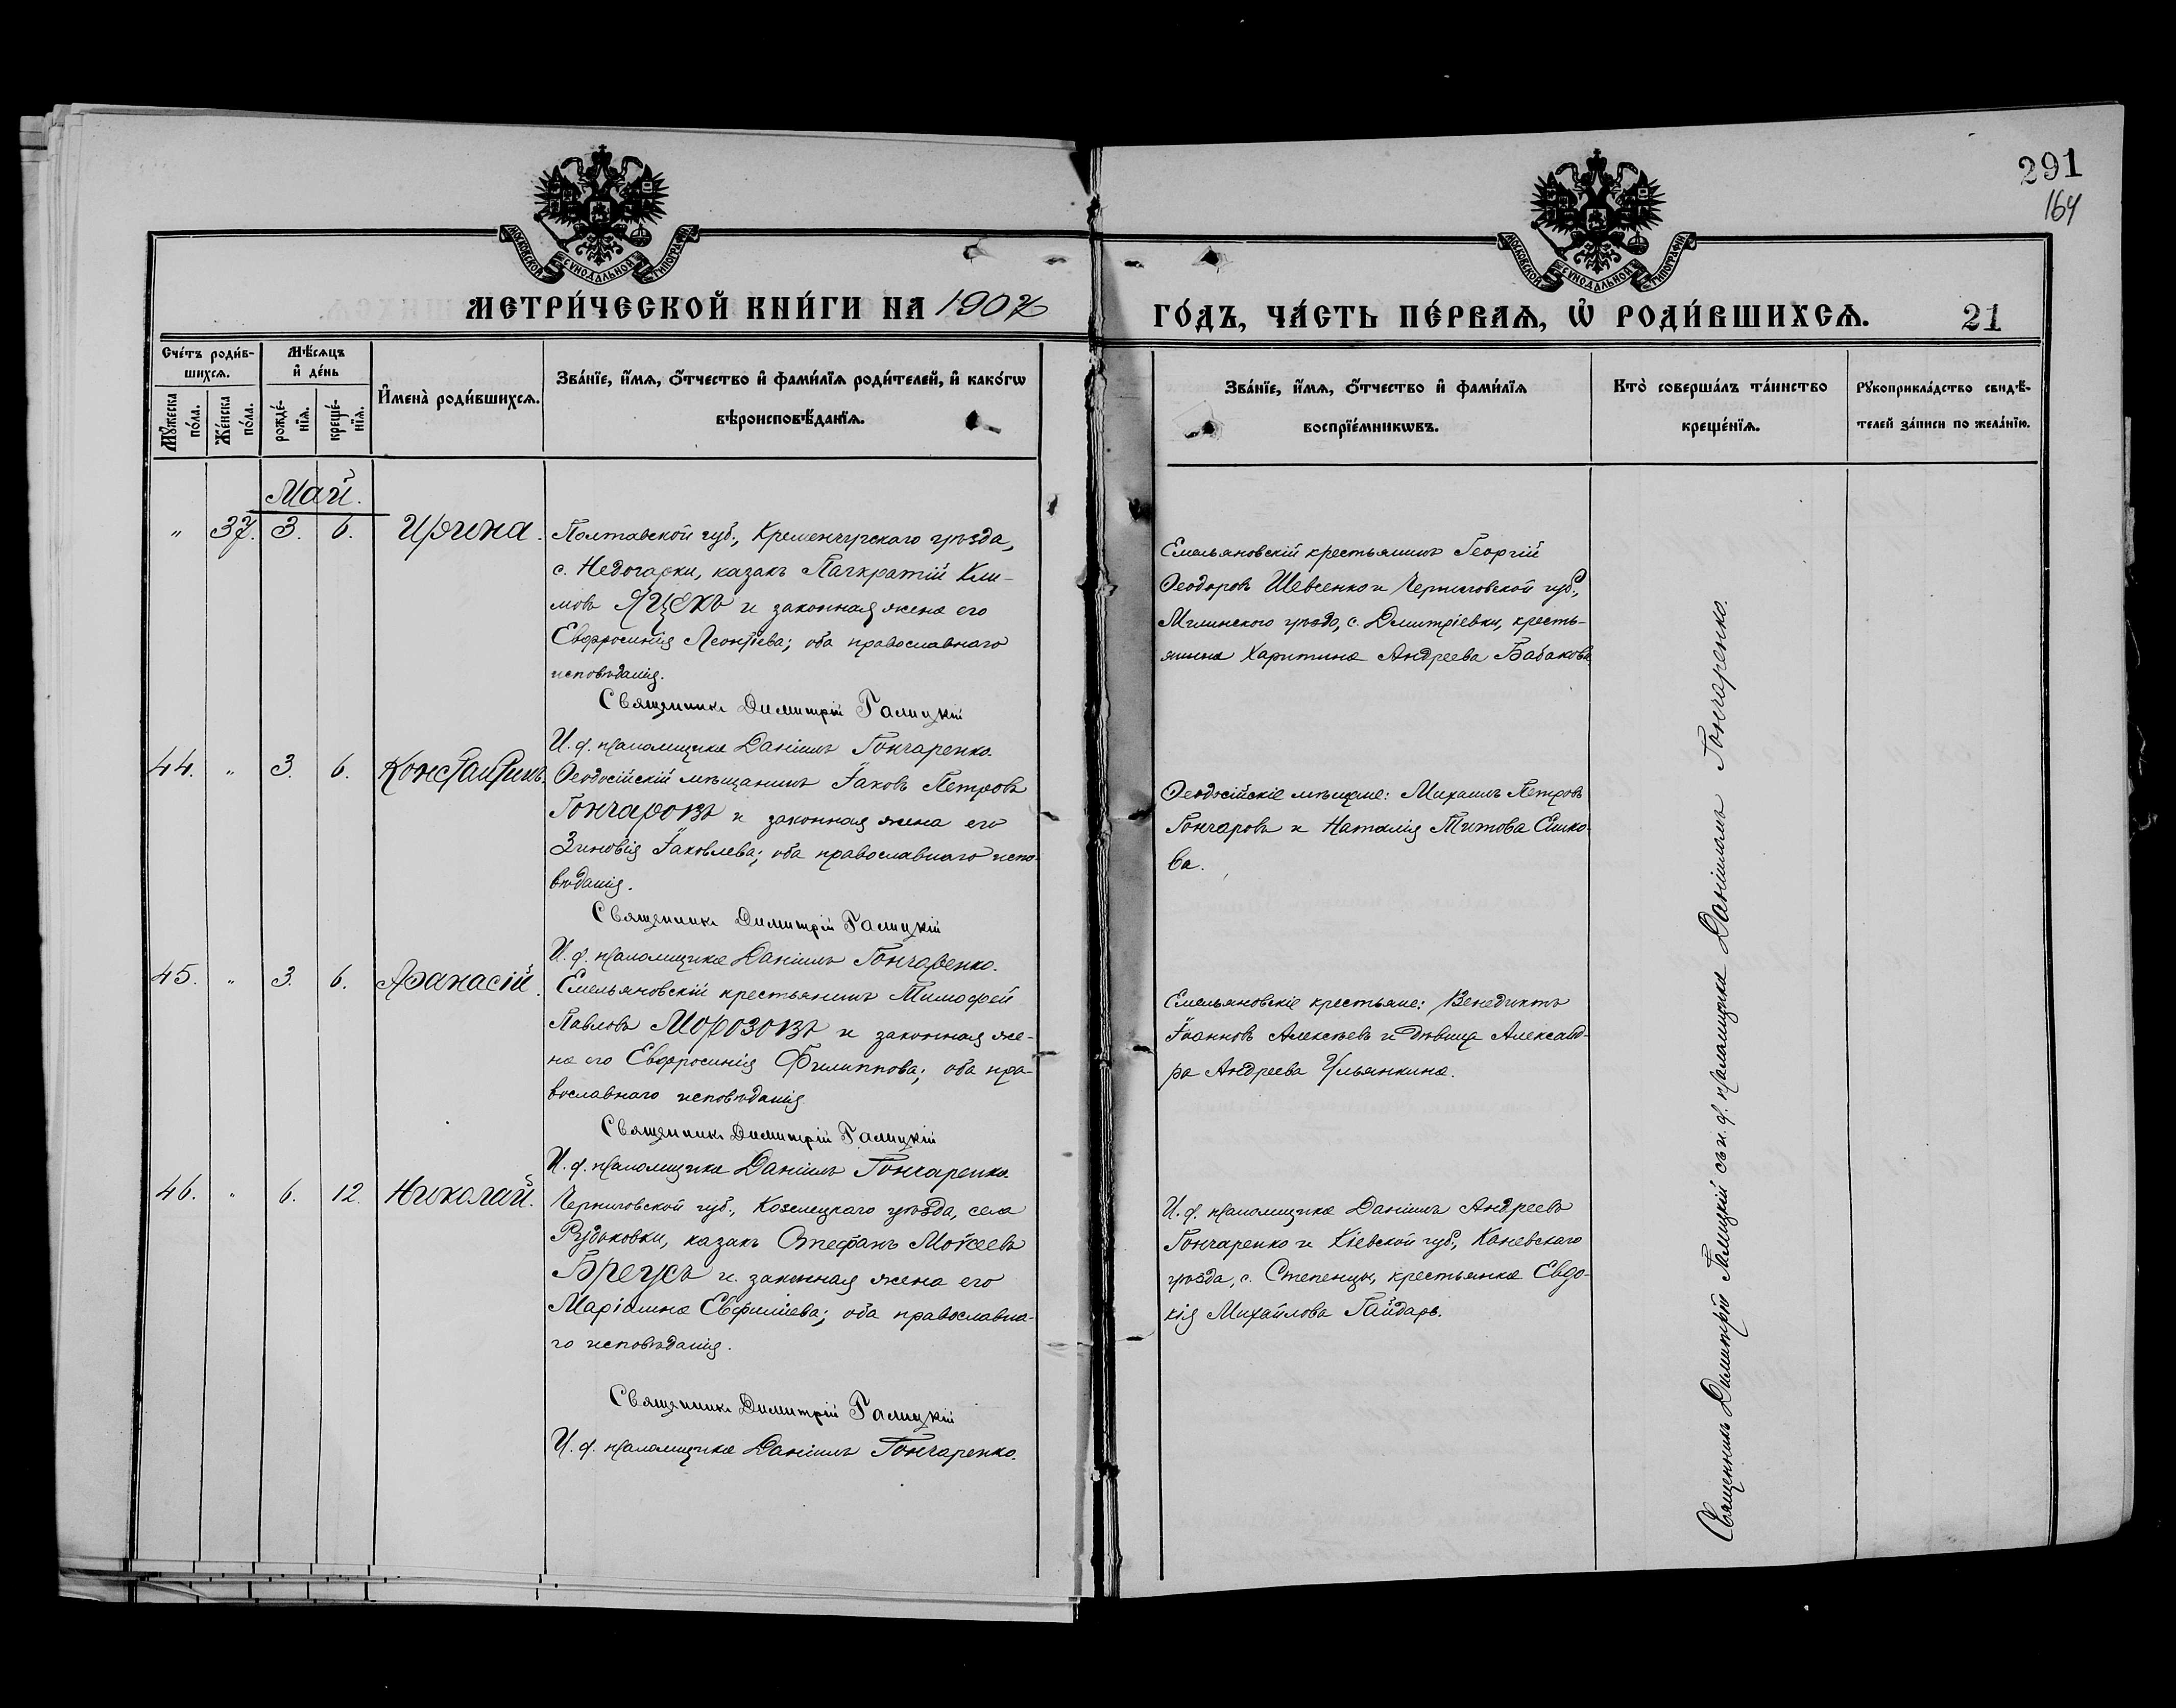 291
164
МОСКОВСКОЙ СѴНОДАЛЬНОЙ ТИПОГРАФІИ
МОСКОВСКОЙ СѴНОДАЛЬНОЙ ТИПОГРАФІИ
МЕТРИ́ЧЕСКОЙ КНИ́ГИ НА 1907
ГО́ДЪ, ЧА́СТЬ ПЕ́РВАѦ, Ѡ РОДИ́ВШИХСѦ.
21
Сче́тъ роди́в-
шихсѧ.
Мꙋ́жеска по́ла.
Же́нска по́ла.
Мѣ́сѧцъ
и҆ де́нь
рожде́-
нїѧ.
креще́-
нїѧ.
И҆мена̀ роди́вшихсѧ.
Зва́нїе, и҆́мѧ, ѻ҆́тчество и҆ фами́лїѧ роди́телей, и҆ како́гѡ
вѣроисповѣ́данїѧ.
Зва́нїе, и҆́мѧ, ѻ҆́тчество и҆ фами́лїѧ
воспрїе́мникѡвъ.
Кто̀ соверша́лъ та́инство
креще́нїѧ.
Рꙋкоприкла́дство свидѣ́-
телей за́писи по жела́нїю.
Май.
„ 37. 3. 6. Ирина.
Полтавской губ., Кременчугскаго уѣзда,
с. Недогарки, казакъ Панкратій Кли-
мовъ ЯЦЕКЪ и законная жена его
Евфросинія Леонтіева; оба православнаго
исповѣданія.
Священникъ Димитрій Галицкій
И. д. псаломщика Даніилъ Гончаренко.
Емельяновскій крестьянинъ Георгій
Ѳеодоровъ Шевченко и Черниговской губ.,
Мглинскаго уѣзда, с. Дмитріевки, кресть-
янина Харитина Андреева Бабакова
44. „ 3. 6. Константинъ.
Ѳеодосійскій мѣщанинъ Іаковъ Петровъ
Гончаровъ и законная жена его
Зиновія Іаковлева; оба православнаго испо-
вѣданія.
Священникъ Димитрій Галицкій
И. д. псаломщика Даніилъ Гончаренко.
Ѳеодосійскіе мѣщане: Михаилъ Петровъ
Гончаровъ и Наталія Титова
ва.
45. „ 3. 6. Аѳанасій.
Емельяновскій крестьянинъ Тимофей
Павловъ Морозовъ и законная же-
на его Евфросинія Филиппова; оба пра-
вославнаго исповѣданія.
Священникъ Димитрій Галицкій
И. д. псаломщика Даніилъ Гончаренко.
Емельяновскіе крестьяне: Венедиктъ
Іоанновъ Алексѣевъ и дѣвица Александ-
ра Андреева Ульянкина.
46. „ 6. 12. Николай.
Черниговской губ., Козелецкаго уѣзда, села
Рудьковки, казакъ Стефанъ Мойсеевъ
Бреусъ и законная жена его
Маріамна Евфиміева; оба православна-
го исповѣданія.
Священникъ Димитрій Галицкій
И. д. псаломщика Даніилъ Гончаренко.
И. д. псаломщика Даніилъ Андреевъ
Гончаренко и Кіевской губ., Каневскаго
уѣзда, с. Степенцы, крестьянка Евдо-
кія Михайлова Гайдаръ.
Священникъ Димитрій Галицкій съ и. д. псаломщика Даніиломъ Гончаренко.